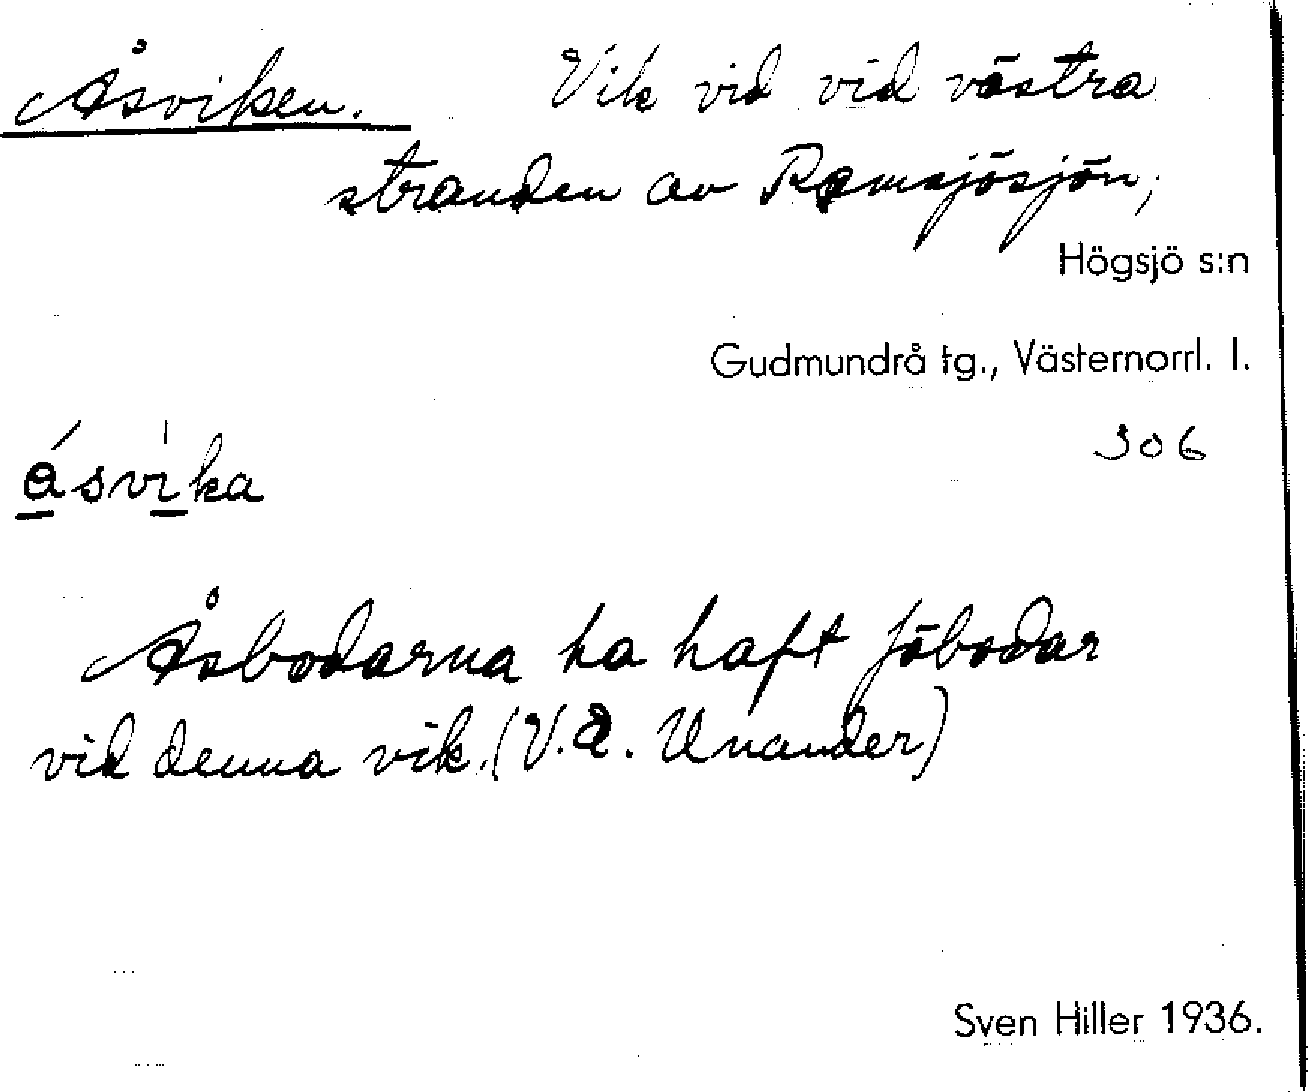 Åsviken. Vik vid vid västra
stranden av Ramsjösjön,
Högsjö s:n
Gudmundrå tg., Västernorrl. l.
306
åsvika
Åsbodarna ha haft fäbodar
vid denna vik. (V.A. Unander)
Sven Hiller 1936.